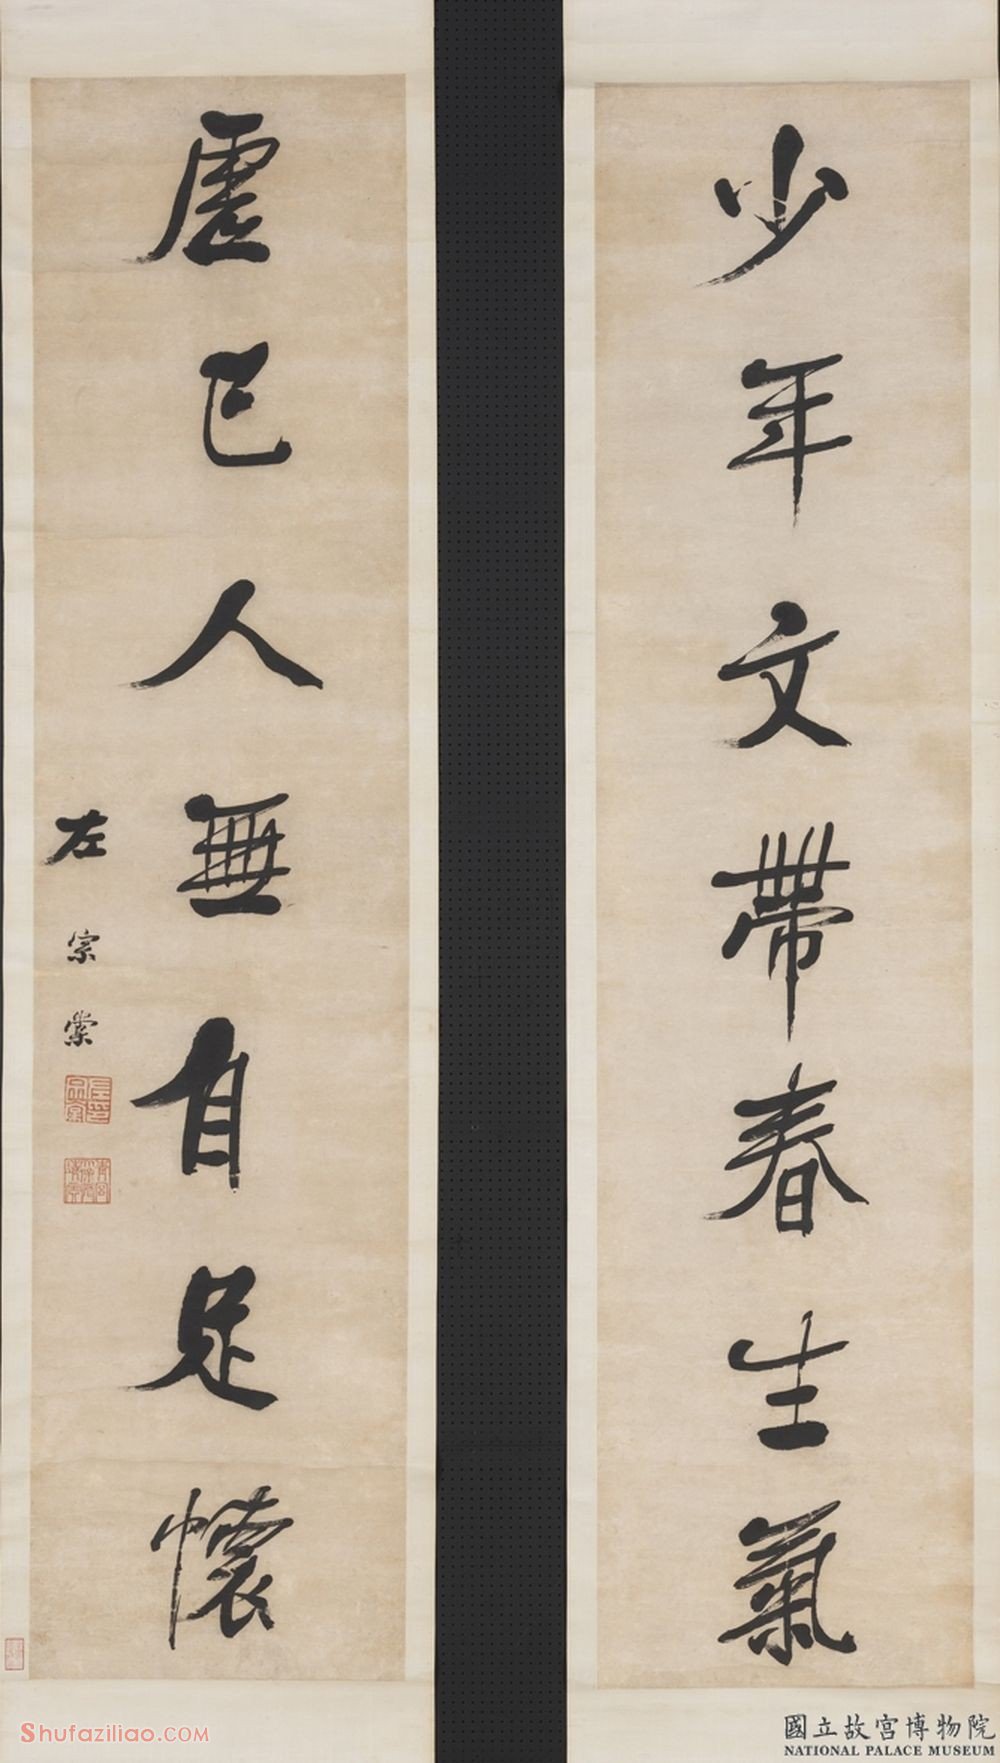 少年文帶春生氣
虛己人無自足懷
左宗棠
Shufaziliao.COM
國立故宮博物院
NATIONAL PALACE MUSEUM